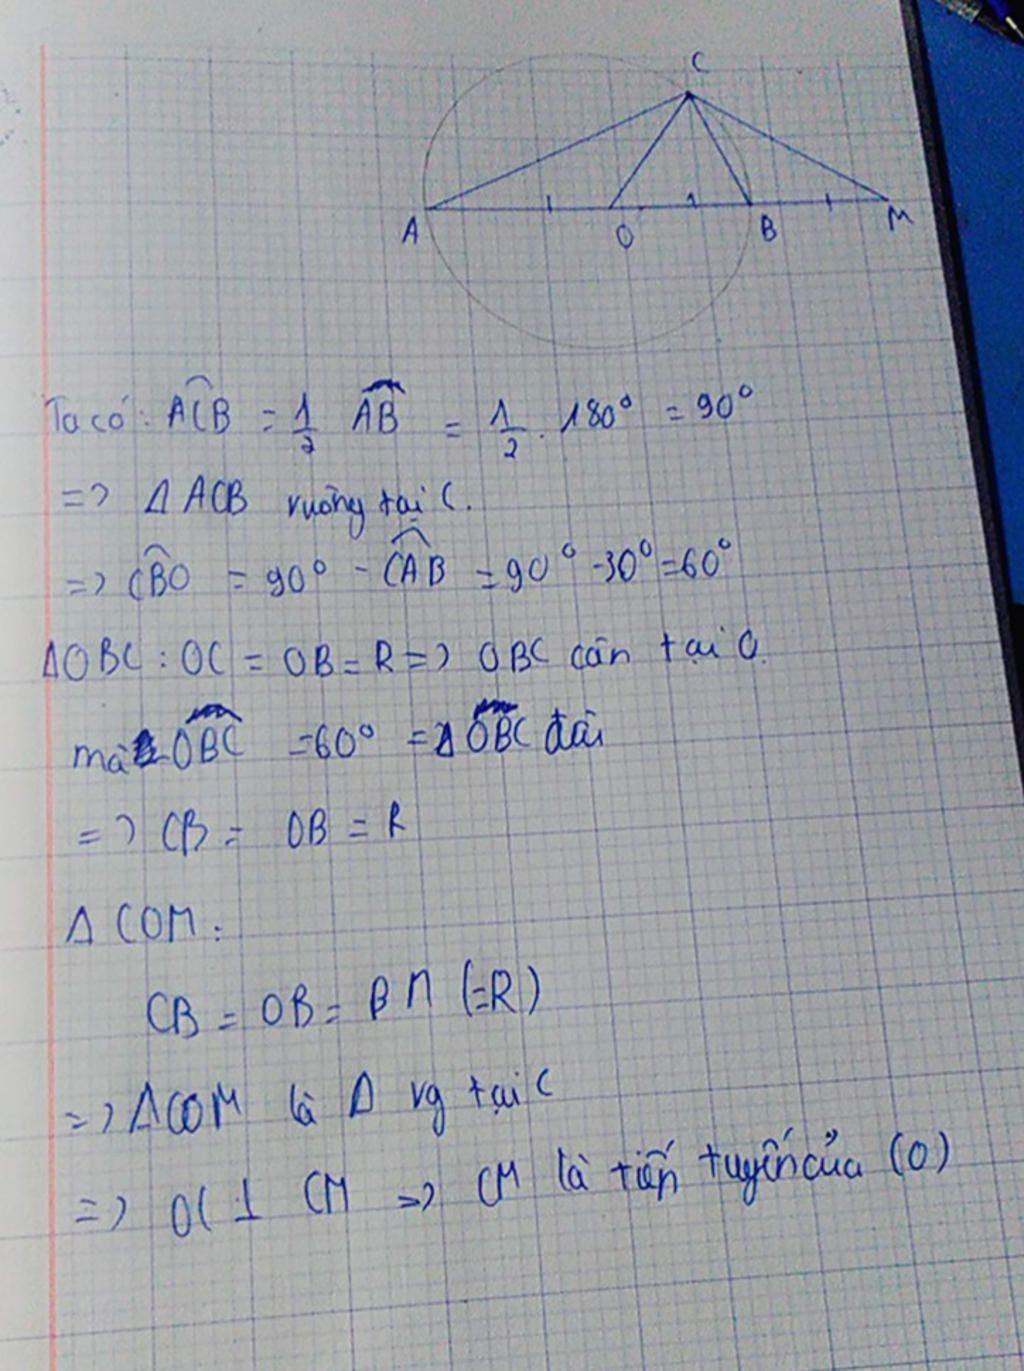 C
A O B M
Ta có: \widehat{ACB} = \frac{1}{2} \widehat{AB} = \frac{1}{2} . 180° = 90°
=> Δ ACB vuông tại C.
=> \widehat{CBO} = 90° - \widehat{CAB} = 90° - 30° = 60°
ΔOBC : OC = OB = R => OBC cân tại O.
mà \widehat{OBC} = 60° = Δ \widehat{OBC} đều
=> CB = OB = R
Δ COM :
CB = OB = BM (=R)
=> ΔCOM là Δ vg tại C
=> OC ⊥ CM => CM là tiến tuyến của (O)